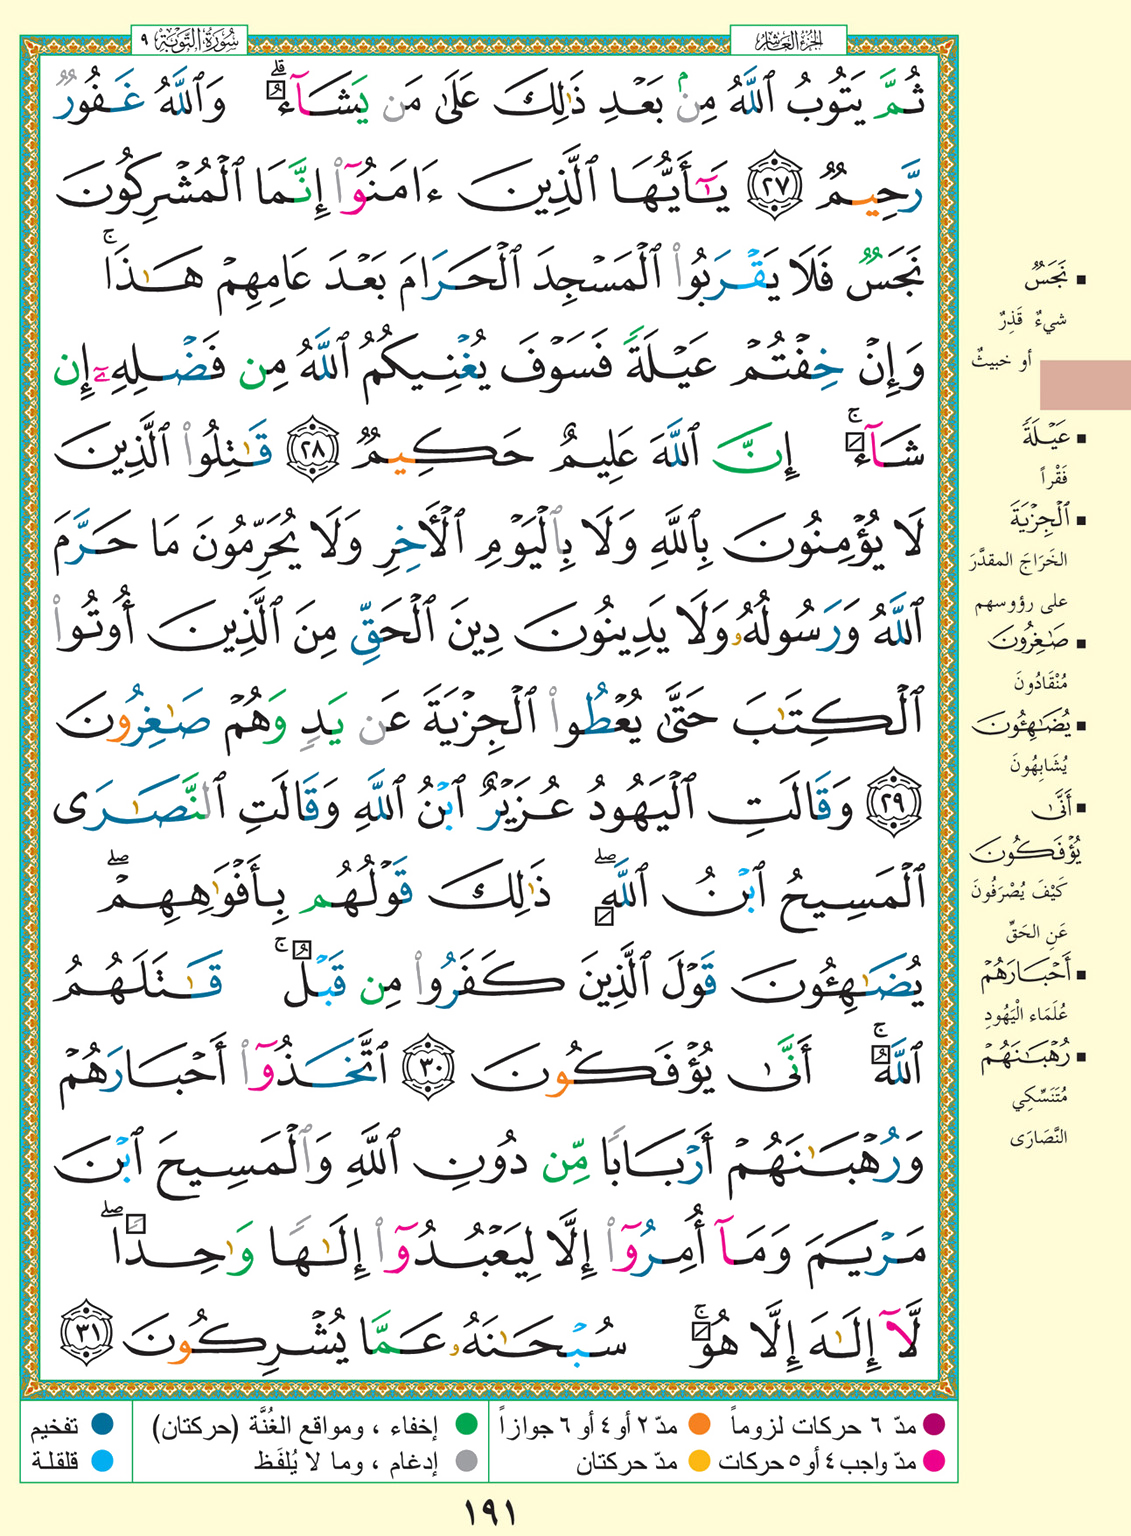 الجزء العاشر
سُورَةُ التَّوْبَةِ ٩
ثُمَّ يَتُوبُ ٱللَّهُ مِنۢ بَعْدِ ذَٰلِكَ عَلَىٰ مَن يَشَآءُ ۗ وَٱللَّهُ غَفُورٌ
رَّحِيمٌ ٢٧ يَـٰٓأَيُّهَا ٱلَّذِينَ ءَامَنُوٓا۟ إِنَّمَا ٱلْمُشْرِكُونَ
نَجَسٌ فَلَا يَقْرَبُوا۟ ٱلْمَسْجِدَ ٱلْحَرَامَ بَعْدَ عَامِهِمْ هَـٰذَا ۚ
وَإِنْ خِفْتُمْ عَيْلَةً فَسَوْفَ يُغْنِيكُمُ ٱللَّهُ مِن فَضْلِهِۦٓ إِن
شَآءَ ۚ إِنَّ ٱللَّهَ عَلِيمٌ حَكِيمٌ ٢٨ قَـٰتِلُوا۟ ٱلَّذِينَ
لَا يُؤْمِنُونَ بِٱللَّهِ وَلَا بِٱلْيَوْمِ ٱلْـَٔاخِرِ وَلَا يُحَرِّمُونَ مَا حَرَّمَ
ٱللَّهُ وَرَسُولُهُۥ وَلَا يَدِينُونَ دِينَ ٱلْحَقِّ مِنَ ٱلَّذِينَ أُوتُوا۟
ٱلْكِتَـٰبَ حَتَّىٰ يُعْطُوا۟ ٱلْجِزْيَةَ عَن يَدٍ وَهُمْ صَـٰغِرُونَ
٢٩ وَقَالَتِ ٱلْيَهُودُ عُزَيْرٌ ٱبْنُ ٱللَّهِ وَقَالَتِ ٱلنَّصَـٰرَى
ٱلْمَسِيحُ ٱبْنُ ٱللَّهِ ۖ ذَٰلِكَ قَوْلُهُم بِأَفْوَٰهِهِمْ ۖ
يُضَـٰهِـُٔونَ قَوْلَ ٱلَّذِينَ كَفَرُوا۟ مِن قَبْلُ ۚ قَـٰتَلَهُمُ
ٱللَّهُ ۚ أَنَّىٰ يُؤْفَكُونَ ٣٠ ٱتَّخَذُوٓا۟ أَحْبَارَهُمْ
وَرُهْبَـٰنَهُمْ أَرْبَابًا مِّن دُونِ ٱللَّهِ وَٱلْمَسِيحَ ٱبْنَ
مَرْيَمَ وَمَآ أُمِرُوٓا۟ إِلَّا لِيَعْبُدُوٓا۟ إِلَـٰهًا وَٰحِدًا ۖ
لَّآ إِلَـٰهَ إِلَّا هُوَ ۚ سُبْحَـٰنَهُۥ عَمَّا يُشْرِكُونَ ٣١
نَجَسٌ
شيءٌ قَذِرٌ
أو خبيثٌ
عَيْلَةً
فَقْراً
ٱلْجِزْيَةَ
الخَرَاجَ المقدَّرَ
على رؤوسهم
صَـٰغِرُونَ
مُنْقَادُونَ
يُضَـٰهِـُٔونَ
يُشَابِهُونَ
أَنَّىٰ
يُؤْفَكُونَ
كَيْفَ يُصْرَفُونَ
عَنِ الحَقِّ
أَحْبَارَهُمْ
عُلَمَاء الْيَهُودِ
رُهْبَـٰنَهُمْ
مُتَنَسِّكِي
النَّصَارَى
مدّ ٦ حركات لزوماً مدّ ٢ أو ٤ أو ٦ جوازاً إخفاء ، ومواقع الغُنَّة (حركتان) تفخيم
مدّ واجب ٤ أو ٥ حركات مدّ حركتان إدغام ، وما لا يُلفَظ قلقلة
١٩١